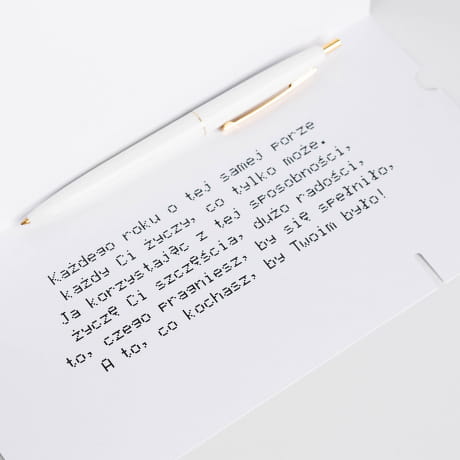 Każdego roku o tej samej porze
każdy Ci życzy, co tylko może.
Ja korzystając z tej sposobności,
życzę Ci szczęścia, dużo radości,
to, czego pragniesz, by się spełniło,
A to, co kochasz, by Twoim było!